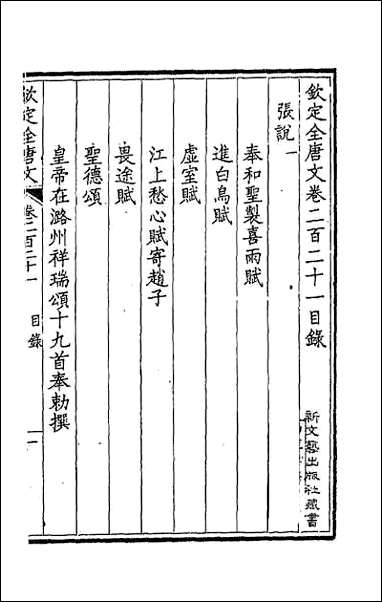 欽定全唐文卷二百二十一目錄
張說一
奉和聖製喜雨賦
進白烏賦
虛室賦
江上愁心賦寄趙子
畏途賦
聖德頌
皇帝在潞州祥瑞頌十九首奉勅撰
欽定全唐文 卷二百二十一 目錄 一
新文藝出版社藏書